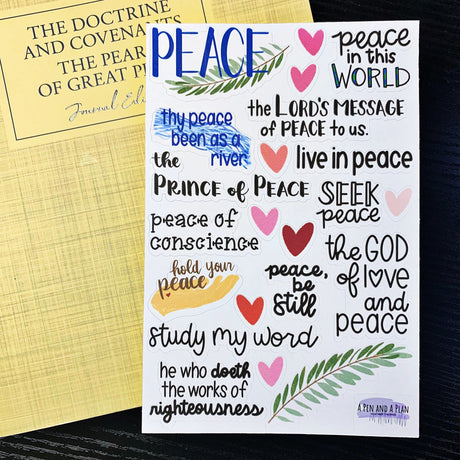 THE DOCTRINE
AND COVENANTS
THE PEAR
OF GREAT P
Journal Edi
PEACE
peace
in this
WORLD
the LORD'S MESSAGE
of PEACE to us.
thy peace
been as a
river
the
PRINCE of PEACE
live in peace
SEEK
peace
peace of
conscience
the GOD
of love
and
peace
hold your
peace
peace,
be
still
study my word
he who doeth
the works of
righteousness
A PEN AND A PLAN